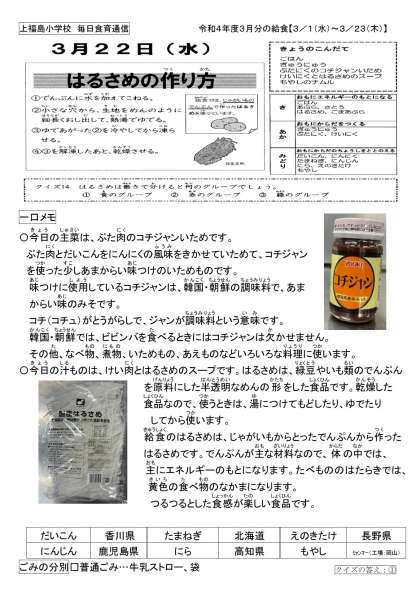 上福島小学校 毎日食育通信
令和4年度3月分の給食【3／1（水）～3／23（木）】
3月22日（水）
はるさめの作り方
①でんぷんに水を加えてこねる。
②小さな穴から、生地をめんのように
細長くおし出して、熱湯でゆでる。
③ゆであがった②を冷やしてから凍ら
せる。
④③を解凍したあと、乾燥させる。
きょうのこんだて
ごはん
ぎゅうにゅう
ぶたにくのコチジャンいため
けいにくとはるさめのスープ
もやしのナムル
き
おもにエネルギーのもとになる
ごはん
あぶら、さとう
はるさめ、ごまあぶら
あか
おもにからだをつくる
ぎゅうにゅう
ぶたにく、けいにく
みどり
おもにからだのちょうしをととのえる
だいこん、にんにく
たまねぎ、にんじん
にら、えのきたけ
もやし
クイズ14 はるさめは働きで分けると何のグループでしょう。
① 黄のグループ ② 赤のグループ ③ 緑のグループ
一口メモ
○今日の主菜は、ぶた肉のコチジャンいためです。
ぶた肉とだいこんをにんにくの風味をきかせていためて、コチジャン
を使った少しあまからい味つけのいためものです。
味つけに使用しているコチジャンは、韓国・朝鮮の調味料で、あま
からい味のみそです。
コチ（コチュ）がとうがらしで、ジャンが調味料という意味です。
韓国・朝鮮では、ビビンバを食べるときにはコチジャンは欠かせません。
その他、なべ物、煮物、いためもの、あえものなどいろいろな料理に使います。
○今日の汁ものは、けい肉とはるさめのスープです。はるさめは、緑豆やいも類のでんぷん
を原料にした半透明なめんの形をした食品です。乾燥した
食品なので、使うときは、湯につけてもどしたり、ゆでたり
してから使います。
給食のはるさめは、じゃがいもからとったでんぷんから作った
はるさめです。でんぷんが主な材料なので、体の中では、
主にエネルギーのもとになります。たべもののはたらきでは、
黄色の食べ物のなかまになります。
つるつるとした食感が楽しい食品です。
コチジャン
はるさめ
だいこん 香川県 たまねぎ 北海道 えのきたけ 長野県
にんじん 鹿児島県 にら 高知県 もやし （工場：岡山）
ごみの分別□普通ごみ…牛乳ストロー、袋
クイズの答え：①